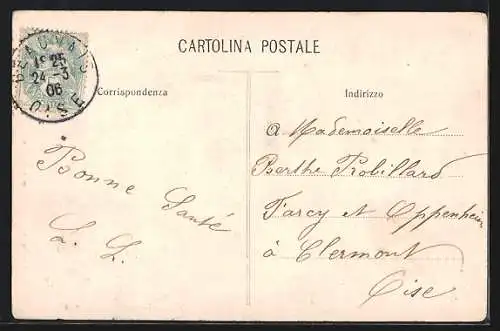 BEAUVAIS
18 25
24 - 3
06
OISE
CARTOLINA POSTALE
Corrispondenza
Indirizzo
Bonne Santé
L. L.
a Mademoiselle
Berthe Robillard
Farcy et Oppenheim
à Clermont
Oise